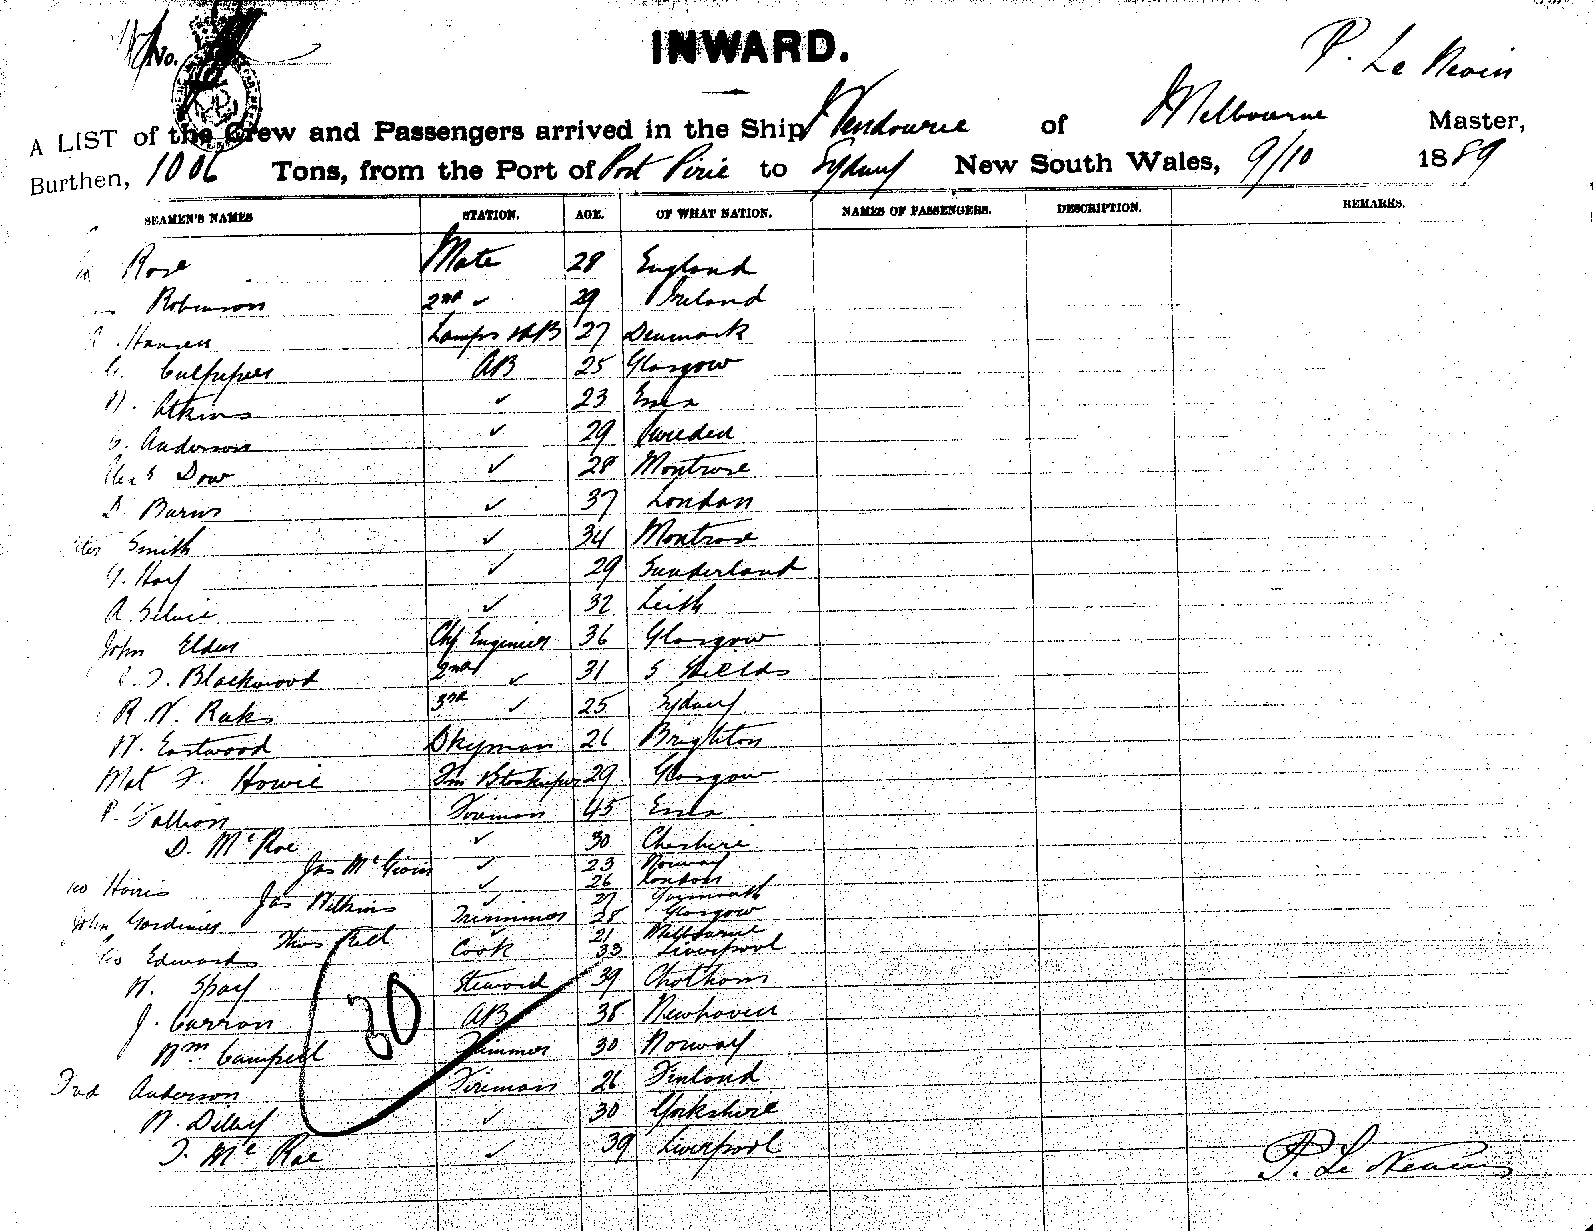 No.
INWARD.
P. Le Nevin
A LIST of the Crew and Passengers arrived in the Ship Wendouree of Melbourne Master,
Burthen, 1006 Tons, from the Port of Port Pirie to Sydney New South Wales, 9/10 1889
SEAMEN'S NAMES STATION. AGE. OF WHAT NATION. NAMES OF PASSENGERS. DESCRIPTION. REMARKS.
Rose Mate 28 England
Robinson 2nd ✓ 29 Ireland
Hansen Lamps & AB 27 Denmark
Culpeper AB 25 Glasgow
W. Atkins ✓ 23 Essex
Anderson ✓ 29 Sweden
Dow ✓ 28 Montrose
D. Burns ✓ 37 London
Smith ✓ 34 Montrose
Hay ✓ 29 Sunderland
A. Selvie ✓ 32 Leith
John Elder Chf Engineer 36 Glasgow
Blackwood 2nd ✓ 31 S Shields
R. W. 3rd ✓ 25 Sydney
W. Eastwood Dkyman 26 Brighton
Mat F. Howie Fm & Storekeeper 29 Glasgow
P. Fallion Fireman 45 Essex
D. McRae ✓ 30 Cheshire
Jas McGivin ✓ 23 Norway
Harris ✓ 26 London
Jas Wilkins ✓ 27 Yarmouth
John Gardiner Trimmer 28 Glasgow
Thos Rell ✓ 21 Melbourne
Edwards Cook 33 Liverpool
W. Spay Steward 39 Chatham
J. Carron AB 38 Newhaven
Wm Campell Trimmer 30 Norway
30
Fred Anderson Fireman 26 Finland
W. Dilley ✓ 30 Yorkshire
F. McRae ✓ 39 Liverpool
P. Le Neven